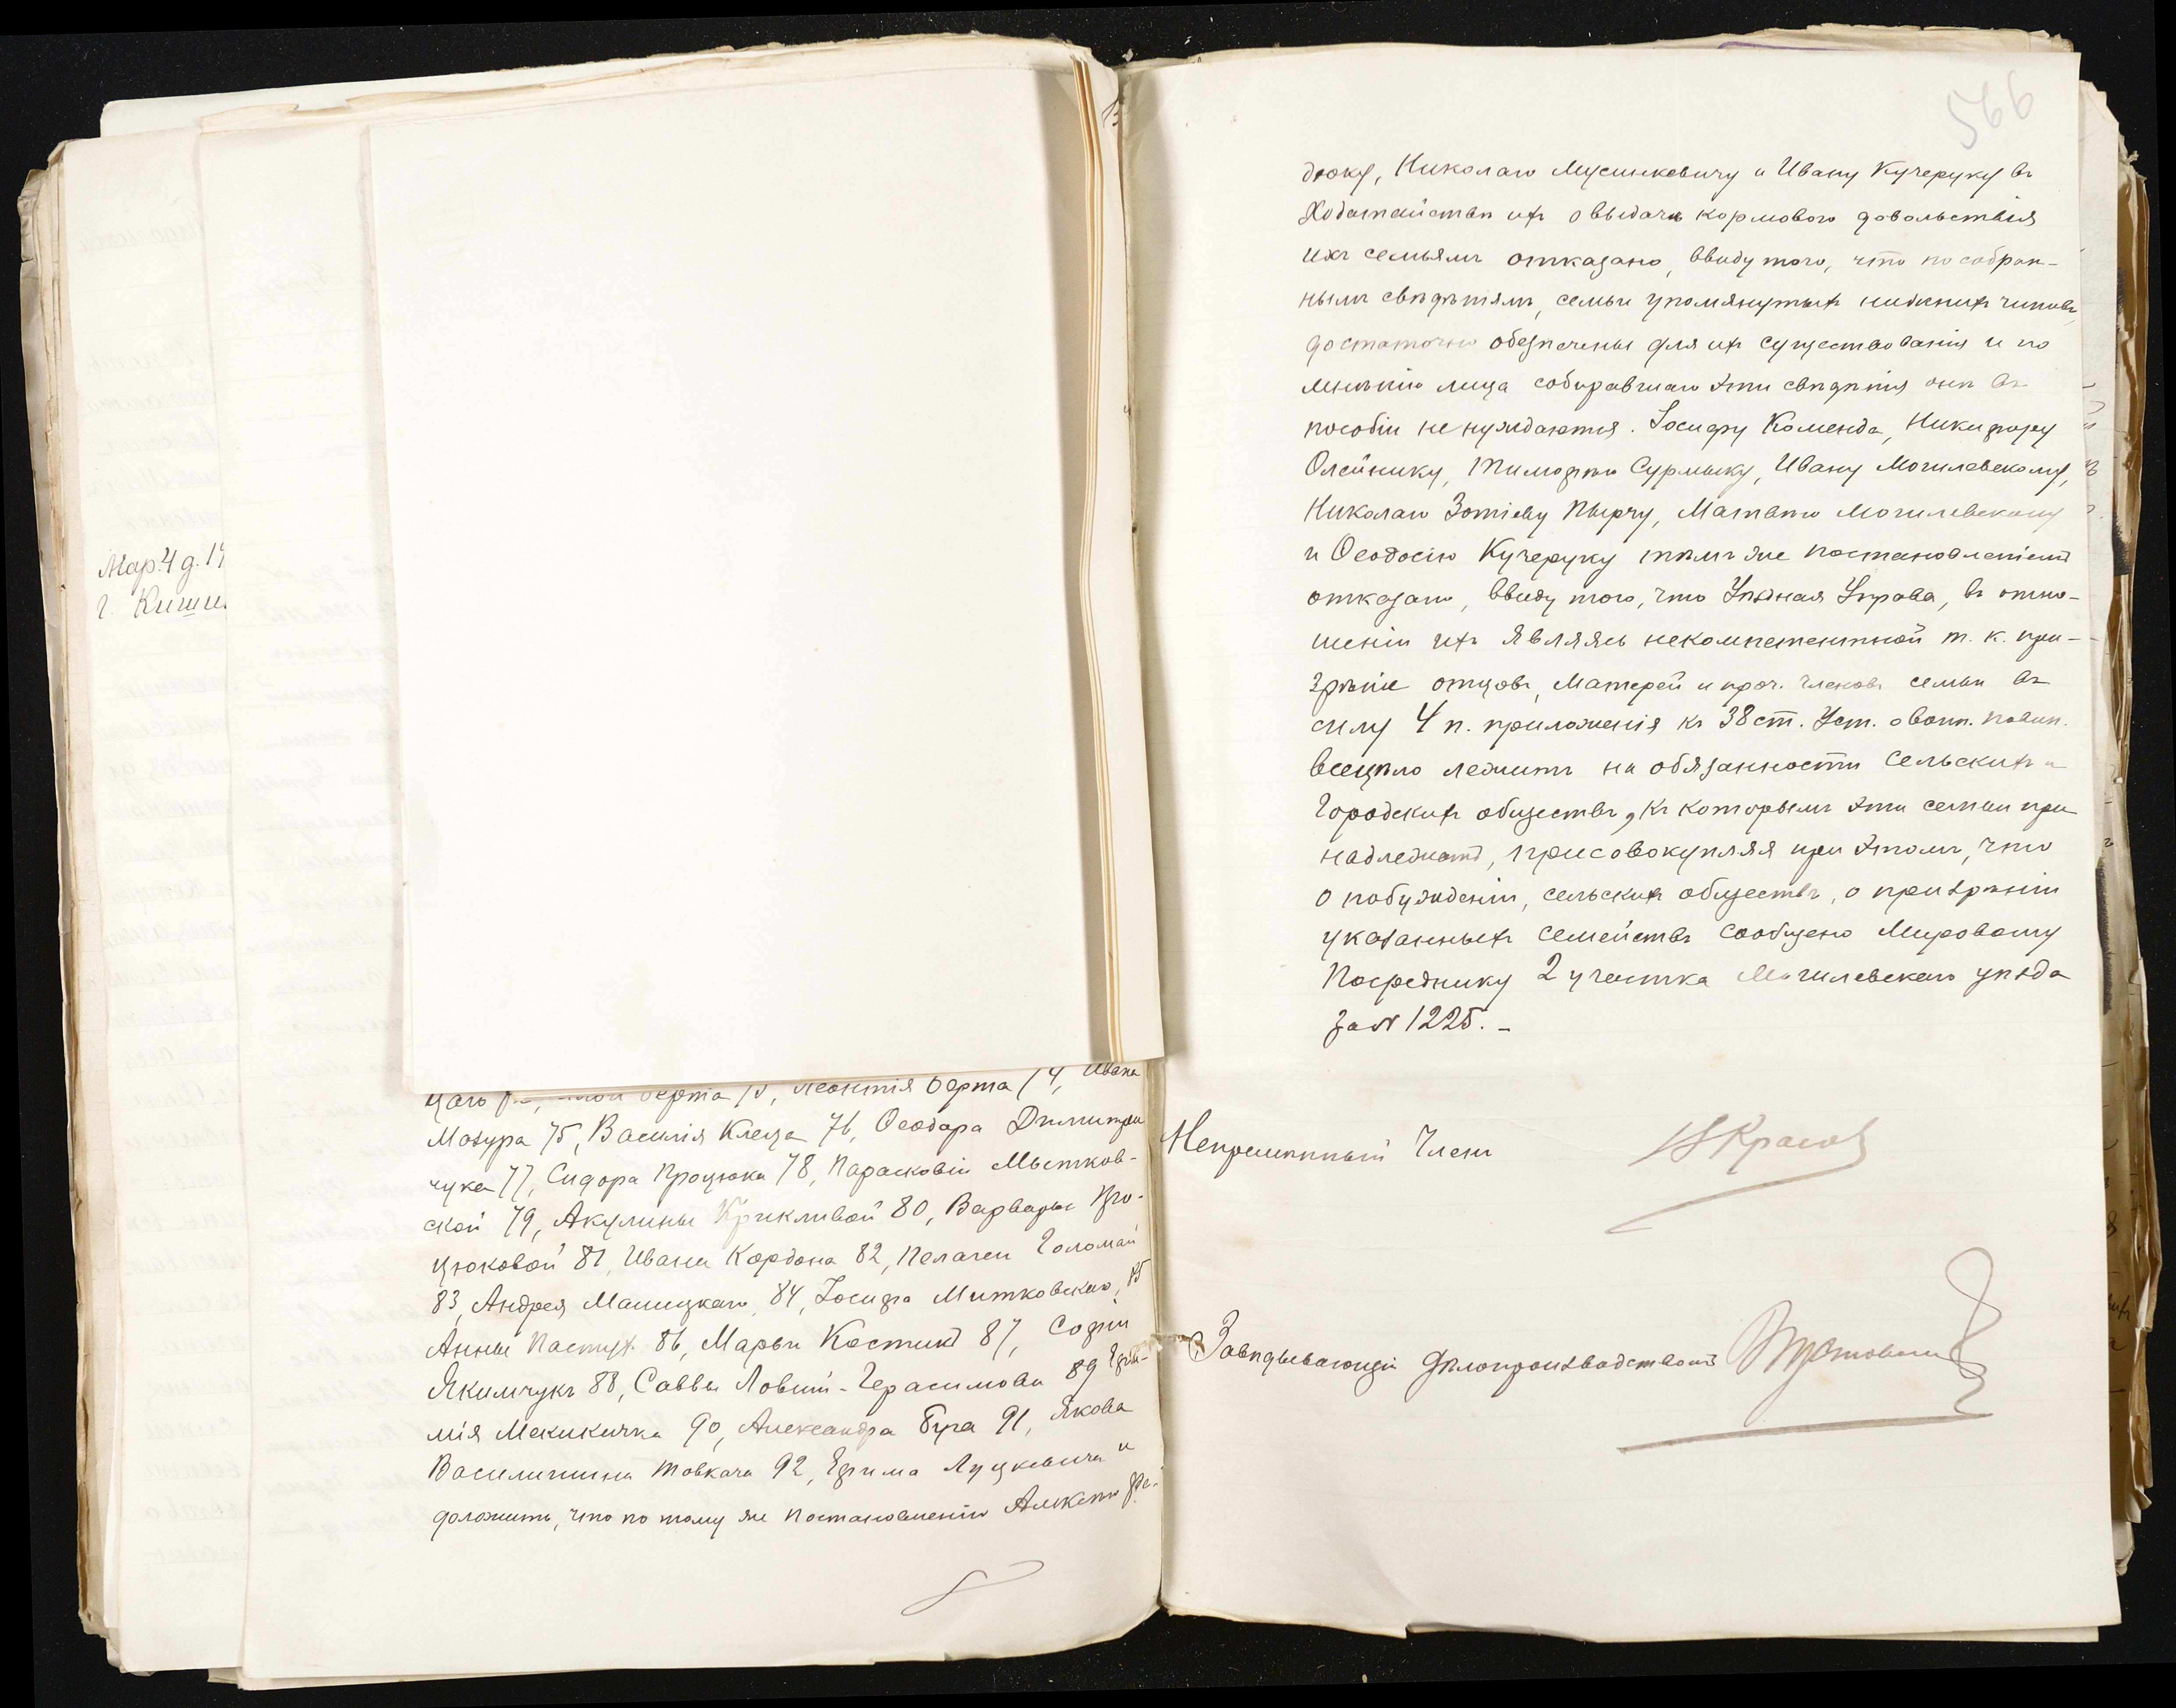 Мар. 4 д. 19
г. Кишин
Ивана
Мазура 75, Василія Клеща 76, Ѳеодора Дмитри
чука 77, Сидора Процюка 78, Парасковіи Мытков-
ской 79, Акулины Крикливой 80, Варвары Про-
цюковой 81, Ивана Кордона 82, Пелагеи Голомай
83, Андрея Малицкаго 84, Іосифа Митковскаго, 85
Анны Пастух 86, Марьи Костикъ 87, Софіи
Якимчукъ 88, Саввы Ловий-Герасимова 89 Ефи-
мія 90, Александра Буга 91, Якова
Товкача 92, Ефима Луцкевича и
доложить, что по тому же постановленію Алексѣю Фе-
566
дюку, Николаю Мусинкевичу и Ивану Кучеруку въ
ходатайствѣ ихъ о выдачѣ кормового довольствія
ихъ семьямъ отказано, ввиду того, что по собран-
нымъ свѣдѣніямъ, семьи упомянутыхъ нижнихъ чиновъ,
достаточно обезпечены для ихъ существованія и по
мнѣнію лица собиравшаго эти свѣдѣнія онѣ въ
пособіи не нуждаются. Іосифу Коменда, Никифору
Олейнику, Тимофѣю Сурмыку, Ивану Могилевскому,
Николаю Зотіеву Пырчу, Матвѣю Могилевскому
и Ѳеодосію Кучеруку тѣмъ же постановленіемъ
отказано, ввиду того, что Уѣздная Управа, въ отно-
шеніи ихъ являясь некомпетентной т. к. при-
зрѣніе отцовъ, матерей и проч. членовъ семьи въ
силу 4 п. приложенія къ 38 ст. Уст. о воин. повин.
всецѣло лежитъ на обязанности сельскихъ и
городскихъ обществъ, къ которымъ эти семьи при
надлежатъ, присовокупляя при этомъ, что
о побужденіи, сельскихъ обществъ, о призрѣніи
указанныхъ семействъ сообщено Мировому
Посреднику 2 участка Могилевскаго уѣзда
за № 1225. -
Непремѣнный Членъ Красов
Завѣдывающій дѣлопроизводствомъ